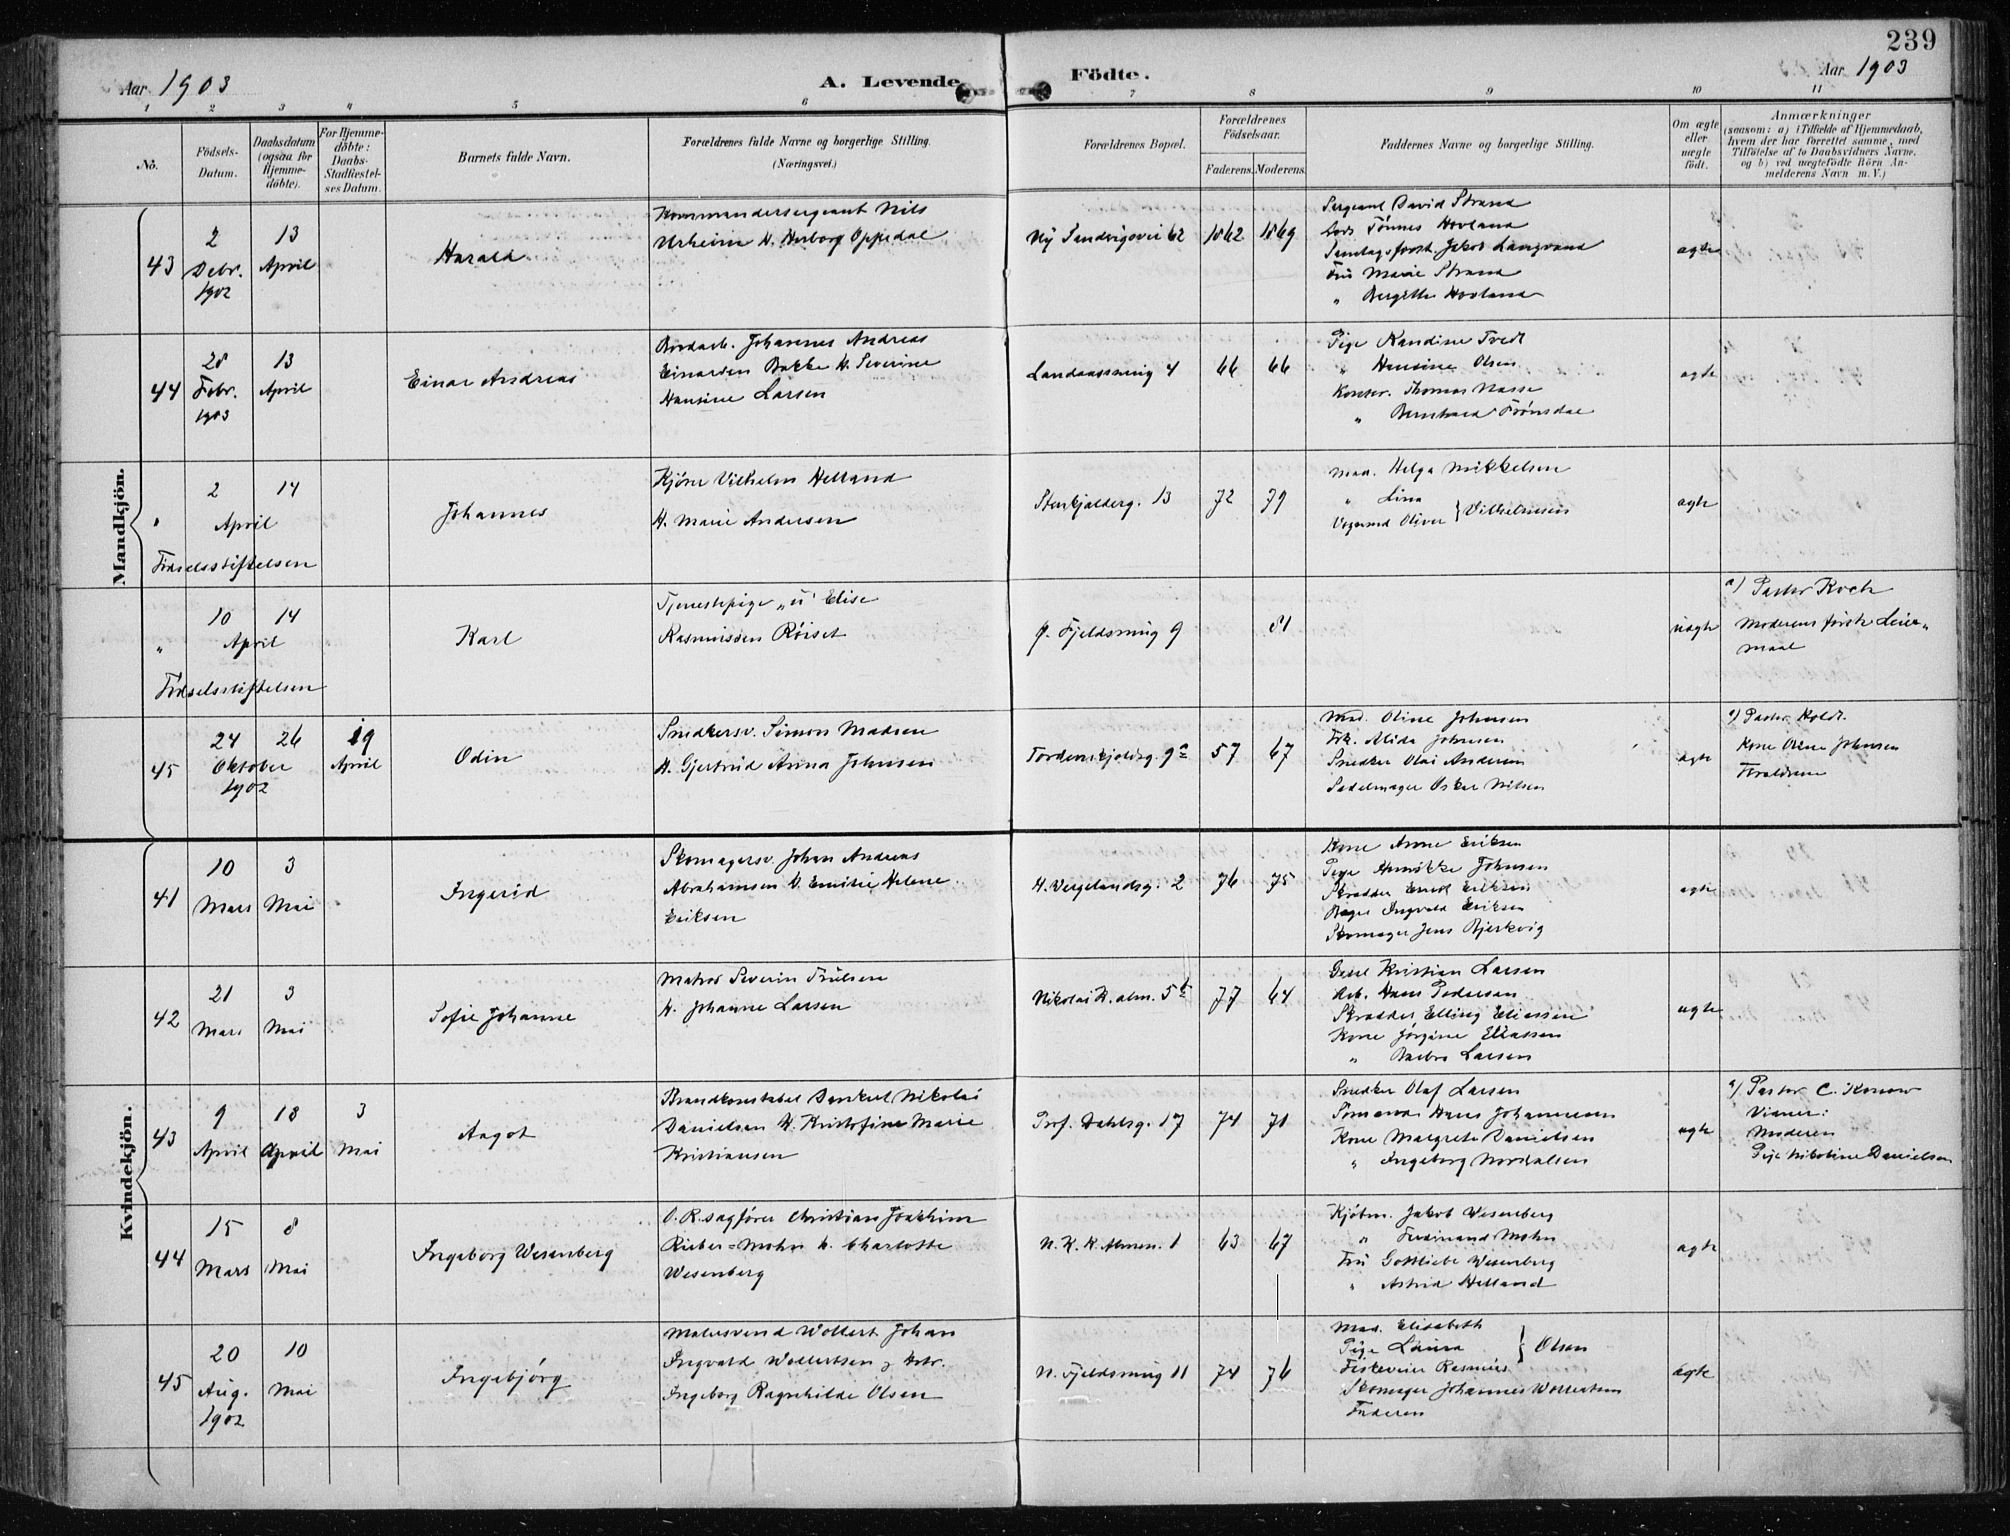 239
Aar 1903
A. Levende Födte.
Aar 1903
1 2 3 4 5 6 7 8 9 10 11
No.
Födsels-Datum.
Daabsdatum (ogsaa for Hjemme-döbte).
For Hjemme-döbte: Daabs-Stadfæstel-ses Datum.
Barnets fulde Navn.
Forældrenes fulde Navne og borgerlige Stilling.
(Næringsvei.)
Forældrenes Bopæl.
Forældrenes Födselsaar.
Faderens. Moderens.
Faddernes Navne og borgerlige Stilling.
Om ægte eller uægte födt.
Anmærkninger
(saasom: a) i Tilfælde af Hjemmedaab, hvem der har forrettet samme, med Tilföielse af to Daabsvidners Navne, og b) ved uægtefödte Börn An-melderens Navn m. V.)
Mandkjön.
43
2 Debr. 1902
13 April
Harald
Kommandersergeant Nils
Urheim H. Herborg Oppedal
Ny Sandvigsvei 62
1862 1869
Sergeant David Strand
Lods Tönnes Hovland
Jakob Langvand
Fru Marie Strand
„ Bergitte Hovland
ægte
44
28 Febr. 1903
13 April
Einar Andreas
Bordarb. Johannes Andreas
Einarsen Bakke H. Severine
Hansine Larsen
Landaassmug 4
66 66
Pige Kandine Tvedt
„ Hansine Olsen
Thomas Nasse
„ Bernhard Frönsdal
ægte
„
2 April
14
Födselsstiftelsen
Johannes
Kjörer Vilhelm Helland
H. Marie Andersen
Stenkjelderg. 13
72 79
Mad. Helga Mikkelsen
„ Lina
Oliver } Vilhelmsen
ægte
„
10 April
14
Födselsstiftelsen
Karl
Tjenestepige „ú" Elise
Rasmussen Röiset
Ø. Fjeldsmug 9
81
uægte
a) Pastor Koch
Moderens förste Leier-
maal
45
24 Oktober 1902
26
19 April
Odin
Snidkersv. Simon Madsen
H. Gjertrud Anna Johnsen
Tordenskjoldsg. 9a
57 67
Mad. Oline Johnsen
Frk. Alida Johnsen
Snedker Olai Andersen
Sadelmager Oskar Nilsen
ægte
a) Pastor Holdt.
Kone Oline Johnsen
Forældrene
Kvindekjön.
41
10 Mars
3 Mai
Ingerid
Skomagersv. Johan Andreas
Abrahamsen H. Emilie Helene
Eriksen
H. Vergelandsg. 2
76 75
Kone Anne Eriksen
Pige Henrikke Johnsen
Skrædder Ernst Eriksen
Bager Ingvald Eriksen
Skomager Jens Bjerkvig
ægte
42
21 Mars
3 Mai
Sofie Johanne
Matros Severin Trulsen
H. Johanne Larsen
Nikolai K. alm. 5b
77 64
Kristian Larsen
Arb. Hans Pedersen
Skrædder Elling Eliassen
Kone Jörgine Eliassen
„ Barbra Larsen
ægte
43
9 April
18 April
3 Mai
Aagot
Brandkonstabel Danckert Nikolai
Danielsen H. Kristofine Marie
Kristiansen
Prof. Dahlsg. 17
74 71
Snedker Olaf Larsen
Sömand Hans Johannesen
Kone Margrete Danielsen
„ Ingeborg Nordalsen
ægte
a) Pastor C. Konow
Vidner:
Moderen
Pige Nikoline Danielsen
44
15 Mars
8 Mai
Ingeborg Wesenberg
O. R. sagförer Christian Joachim
Rieber-Mohn H. Charlotte
Wesenberg
N. K. K. Almen. 1
63 67
Kjöbm. Jakob Wesenberg
„ Ferdinand Mohn
Fru Gottliebe Wesenberg
„ Astrid Helland
ægte
45
20 Aug. 1902
10 Mai
Ingebjörg
Malersvend Wollert Johan
Ingvald Wollertsen & Hstr.
Ingeborg Ragnhilde Olsen
N. Fjeldsmug 11
74 76
Mad. Elisabeth
Pige Laura } Olsen
Rasmus
Skomager Johannes Wollertsen
Faderen
ægte